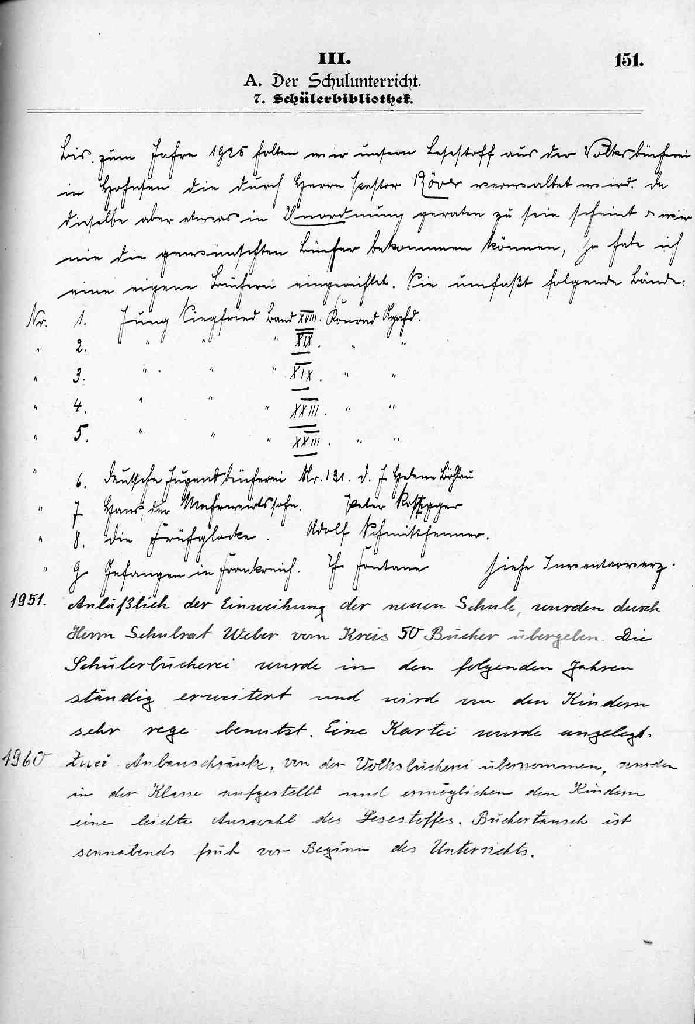 III.
151.
A. Der Schulunterricht.
7. Schülerbibliothek.
Bis zum Jahre 1925 holten wir unsern Lesestoff aus der Volksbücherei
in die durch Herrn Pastor Röver verwaltet wird. Da
dieselbe aber etwas in Unordnung geraten zu sein scheint u. wir
nie die gewünschten Bücher bekommen können, so habe ich
eine eigene Bücherei eingerichtet. Sie umfaßt folgende Bände:
Nr. 1. Jung Siegfried Band XVIII. Konrad
" 2. " " " XIX. " "
" 3. " " " XIX. " "
" 4. " " " XXIII. " "
" 5. " " " XXIII. " "
" 6. Deutsche Jugendbücherei Nr. 121. v.
" 7 Hans der Peter Rosegger
" 8. Die Frühglocke. Adolf Schmitthenner.
" 9. Gefangen in Frankreich. Th Fontane siehe Inventarverz.
1951. Anläßlich der Einweihung der neuen Schule, wurden durch
Herrn Schulrat Weber vom Kreis 50 Bücher übergeben. Die
Schülerbücherei wurde in den folgenden Jahren
ständig erweitert und wird von den Kindern
sehr rege benutzt. Eine Kartei wurde angelegt.
1960 Zwei Anbauschränke, von der Volksbücherei übernommen, wurden
in der Klasse aufgestellt und ermöglichen den Kindern
eine leichte Auswahl des Lesestoffes. Büchertausch ist
sonnabends früh vor Beginn des Unterrichts.